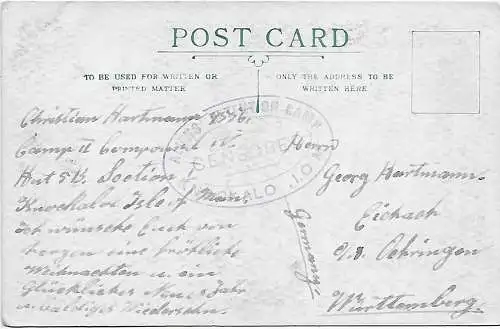 POST CARD
TO BE USED FOR WRITTEN OR PRINTED MATTER
ONLY THE ADDRESS TO BE WRITTEN HERE
Christian Hartmann
Camp II Compound
Hut 5B. Section 1
Knockaloe Isle of Man.
Ich wünsche Euch von
herzen eine fröhliche
Weihnachten u. ein
Glückliches Neues Jahr
Wiedersehn.
CENSORED
CAMP
I.O.M.
Herrn
Georg Hartmann
Eichach
Oehringen
Württemberg.
Germany.